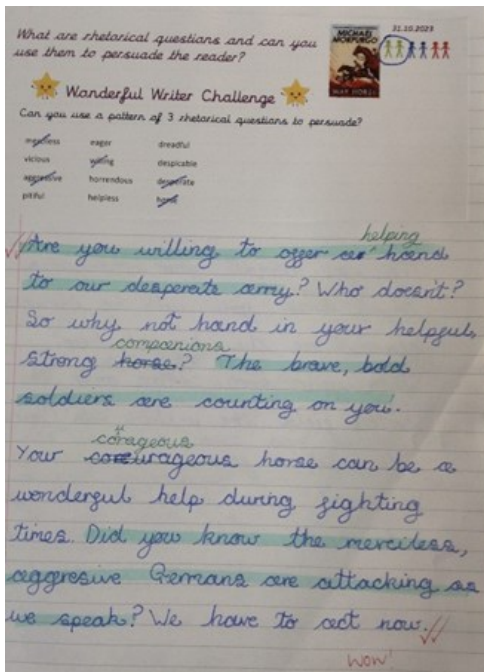 What are rhetorical questions and can you
use them to persuade the reader?
31.10.2023
MICHAEL
MORPURGO
WAR HORSE
Wonderful Writer Challenge
Can you use a pattern of 3 rhetorical questions to persuade?
merciless eager dreadful
vicious willing despicable
aggressive horrendous desperate
pitiful helpless horse
helping
Are you willing to offer a hand
to our desperate army? Who doesn't?
So why not hand in your helpful,
companions
strong horse? The brave, bold
soldiers are counting on you.
corageous
Your courageous horse can be a
wonderful help during fighting
times. Did you know the merciless,
aggresive Gemans are attacking as
we speak? We have to act now.
Wow!